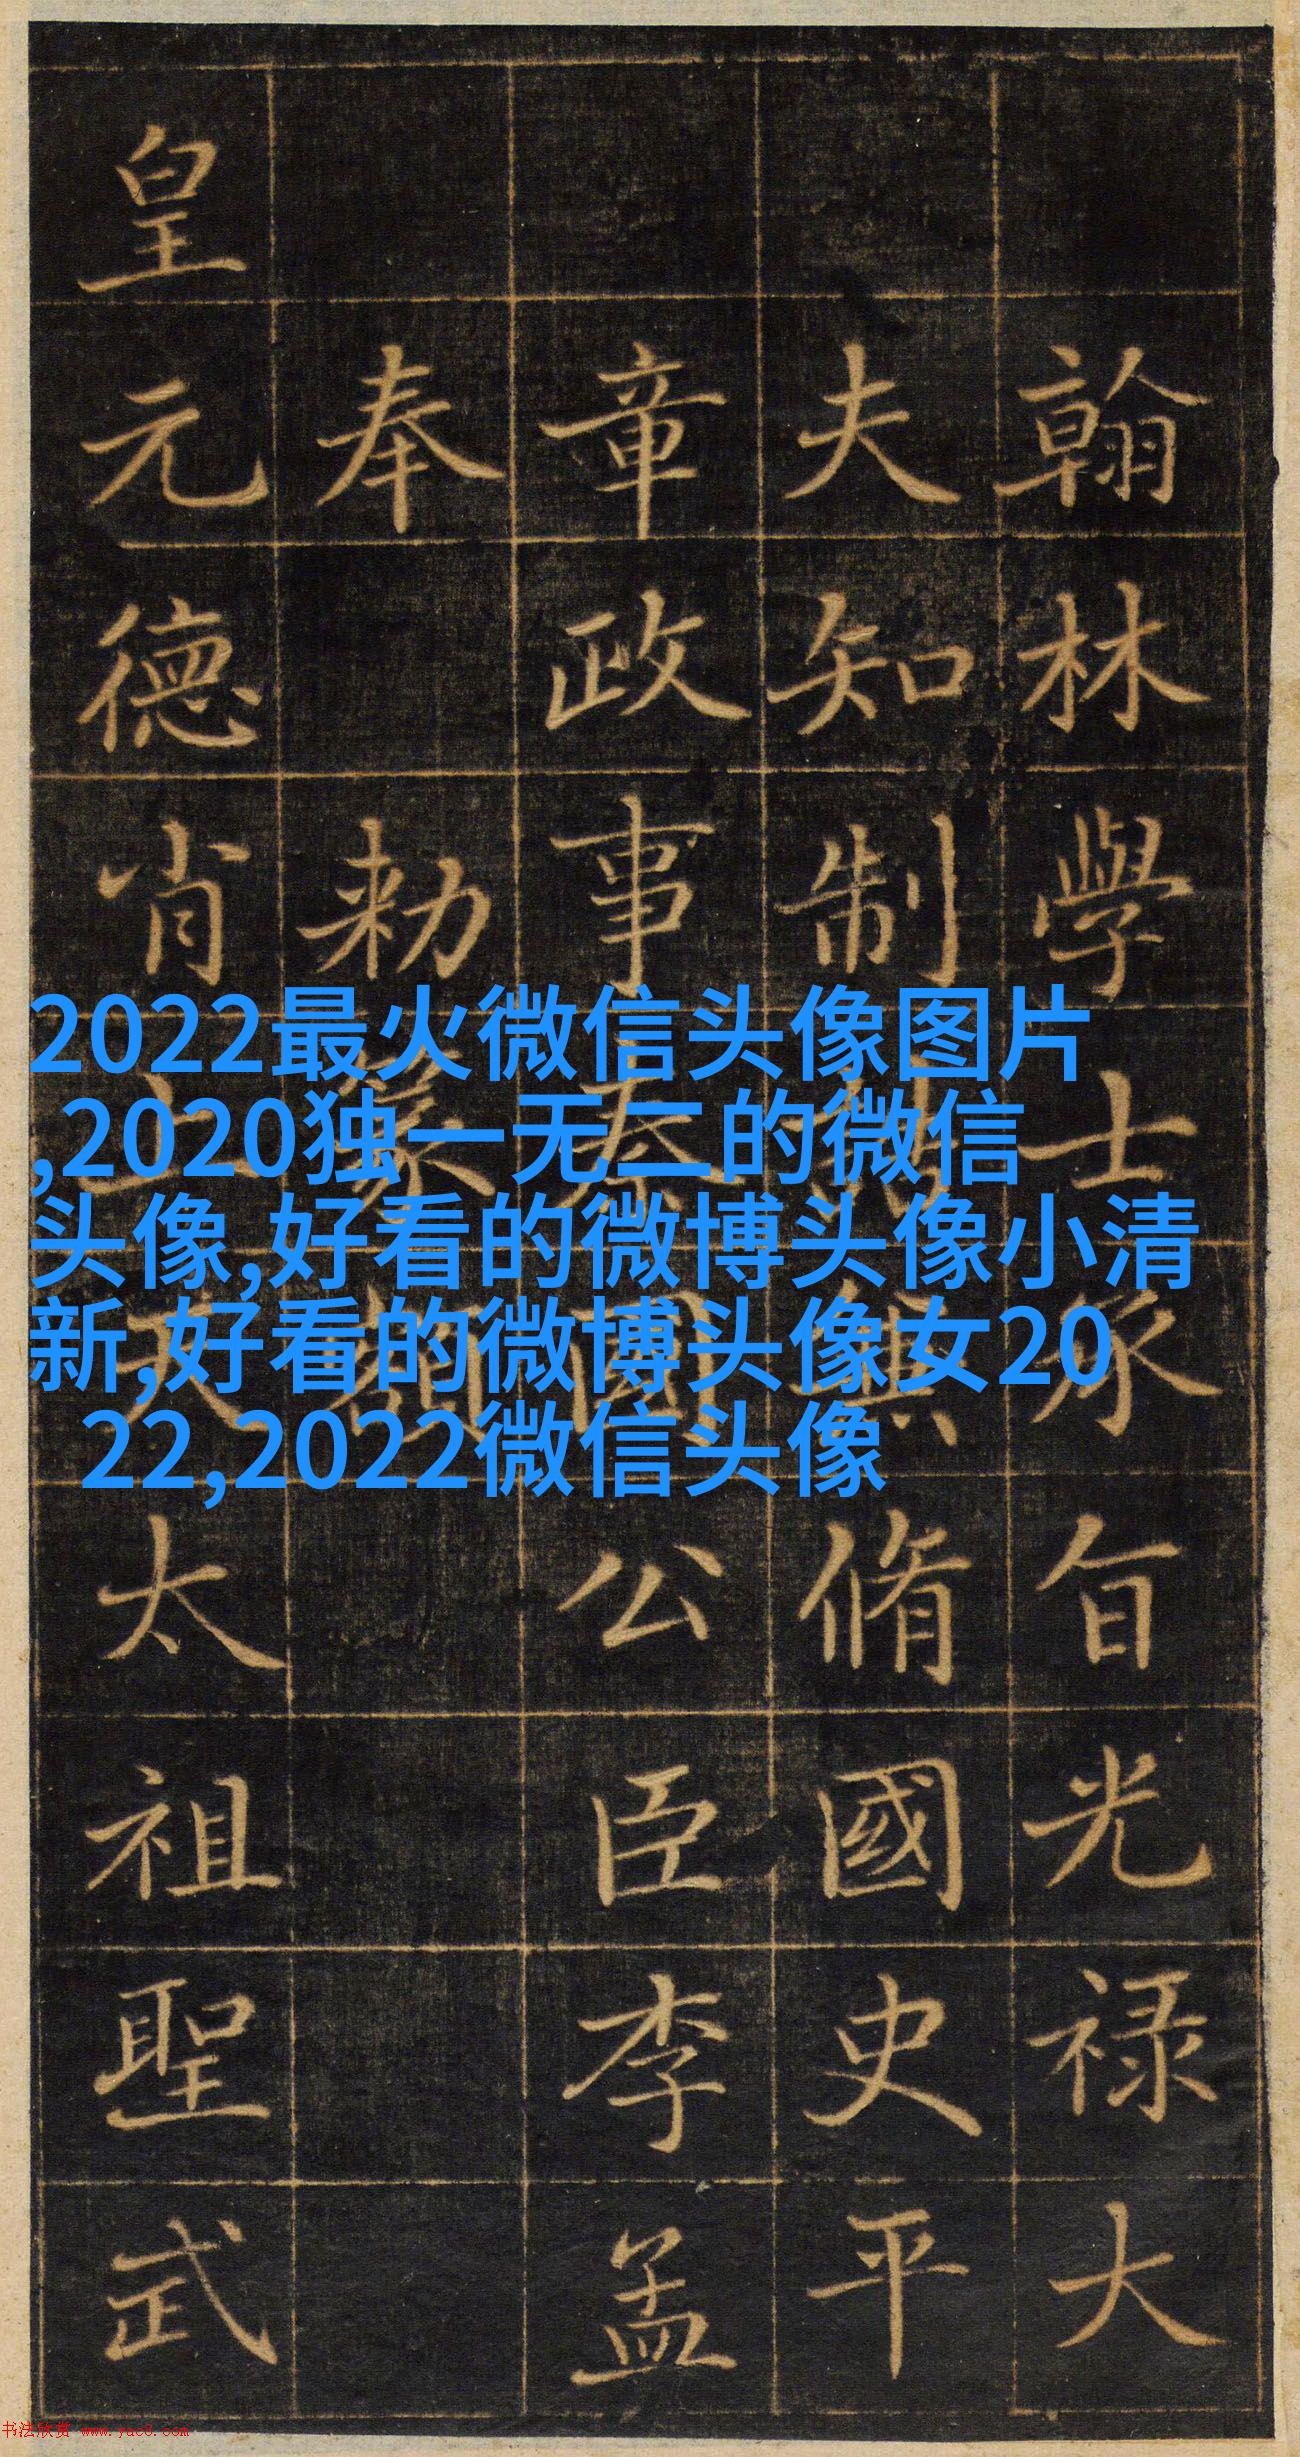 翰林學士承旨光祿大
夫知制誥兼脩國史平
章政事秦國公臣李孟
奉勑篆額
皇元德肖上天太祖聖武
2022最火微信头像图片
,2020独一无二的微信
头像,好看的微博头像小清
新,好看的微博头像女20
22,2022微信头像
书法欣赏 www.yac8.com